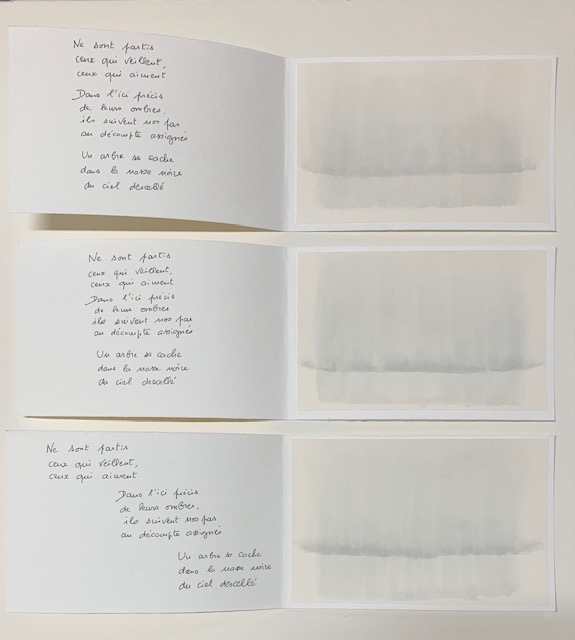 Ne sont partis
ceux qui veillent,
ceux qui aiment
Dans l'ici précis
de leurs ombres,
ils suivent nos pas
au décompte assignés
Un arbre se cache
dans la nasse noire
du ciel descellé
Ne sont partis
ceux qui veillent,
ceux qui aiment
Dans l'ici précis
de leurs ombres
ils suivent nos pas
au décompte assignés
Un arbre se cache
dans la nasse noire
du ciel descellé
Ne sont partis
ceux qui veillent,
ceux qui aiment
Dans l'ici précis
de leurs ombres,
ils suivent nos pas
au décompte assignés
Un arbre se cache
dans la nasse noire
du ciel descellé